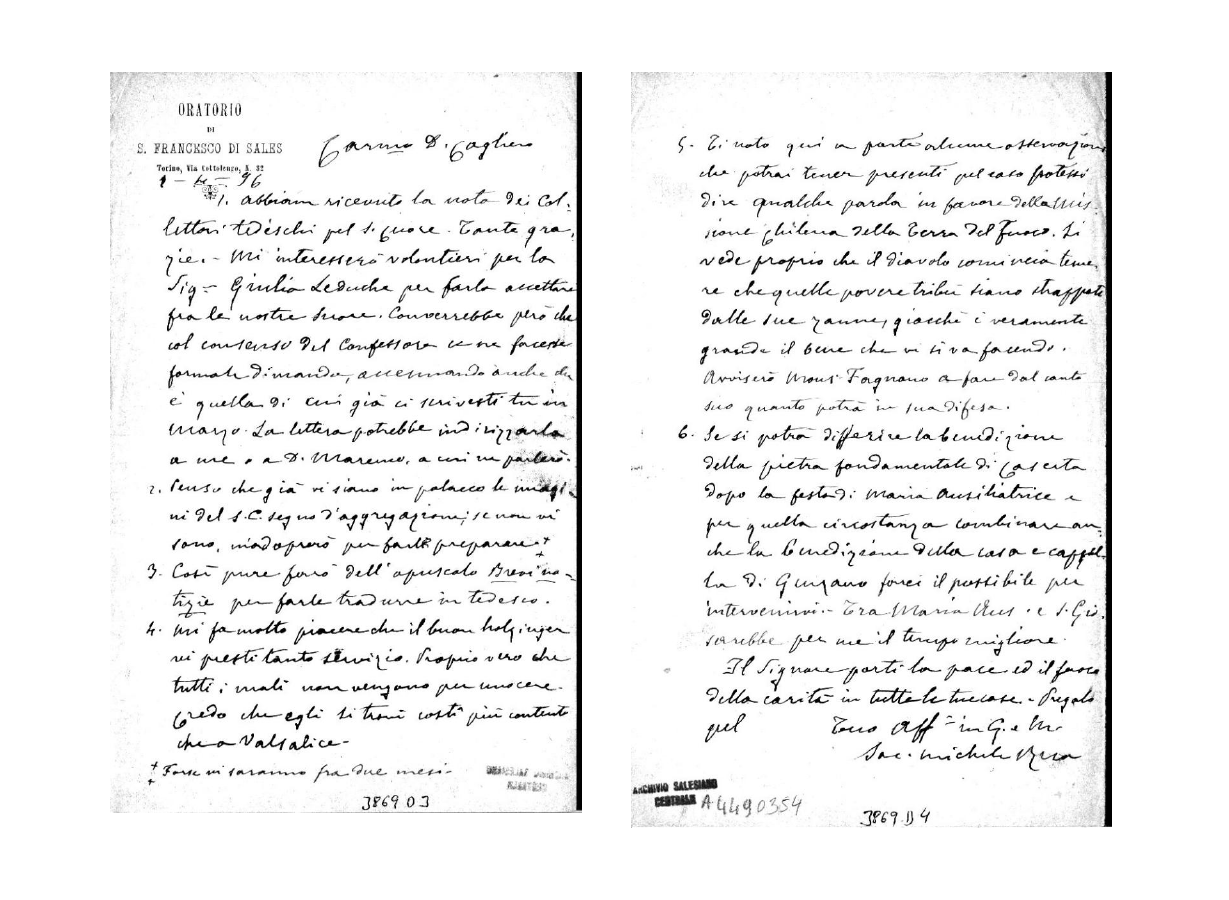 ORATORIO
DI
S. FRANCESCO DI SALES
Torino, Via Cottolengo, N. 32
Carmo D. Cagliero
96
1. Abbiam ricevuto la nota dei Col-
lettori tedeschi pel S. Cuore. Tante gra-
zie. - Mi interesserò volontieri per la
Sig.ra Giulia Leduche per farla accettare
fra le nostre suore. Converrebbe però che
col consenso del Confessore ce ne facesse
formale dimanda, accennando anche che
è quella di cui già ci scrivesti tu in
Marzo. La lettera potrebbe indirizzarla
a me o a D. Marenco, a cui ne parlerò.
2. Penso che già vi siano in polacco le imagi-
ni del S.C. segno d'aggregazione; se non vi
sono, m'adoprerò per farle preparare ‡
3. Così pure farò dell'opuscolo Brevi no-
tizie per farle tradurre in tedesco.
4. Mi fa molto piacere che il buon Holzinger
vi presti tanto servizio. Proprio vero che
tutti i mali non vengono per nuocere.
Credo che egli si trovi costì più contento
che a Valsalice -
‡ Forse vi saranno fra due mesi -
3869 D 3
5. Ti noto qui a parte alcune osservazioni
che potrai tener presenti pel caso potessi
dire qualche parola in favore della Mis-
sione Chilena della Terra del Fuoco. Si
vede proprio che il diavolo comincia teme-
re che quelle povere tribù siano strappate
dalle sue zanne, giacchè è veramente
grande il bene che vi si va facendo.
Avviserò Mons. Fagnano a fare dal canto
suo quanto potrà in sua difesa.
6. Se si potrà differire la benedizione
della pietra fondamentale di Caserta
dopo la festa di Maria Ausiliatrice e
per quella circostanza combinare an-
che la benedizione della casa e cappel-
la di Genzano farei il possibile per
intervenirvi - Tra Maria Aus. e S. Gio.
sarebbe per me il tempo migliore.
Il Signore porti la pace ed il fuoco
della carità in tutte le tue case. - Pregalo
pel Tuo Aff.mo in G. e M.
Sac. Michele Rua
ARCHIVIO SALESIANO
CENTRALE
A4490354
3869 D 4